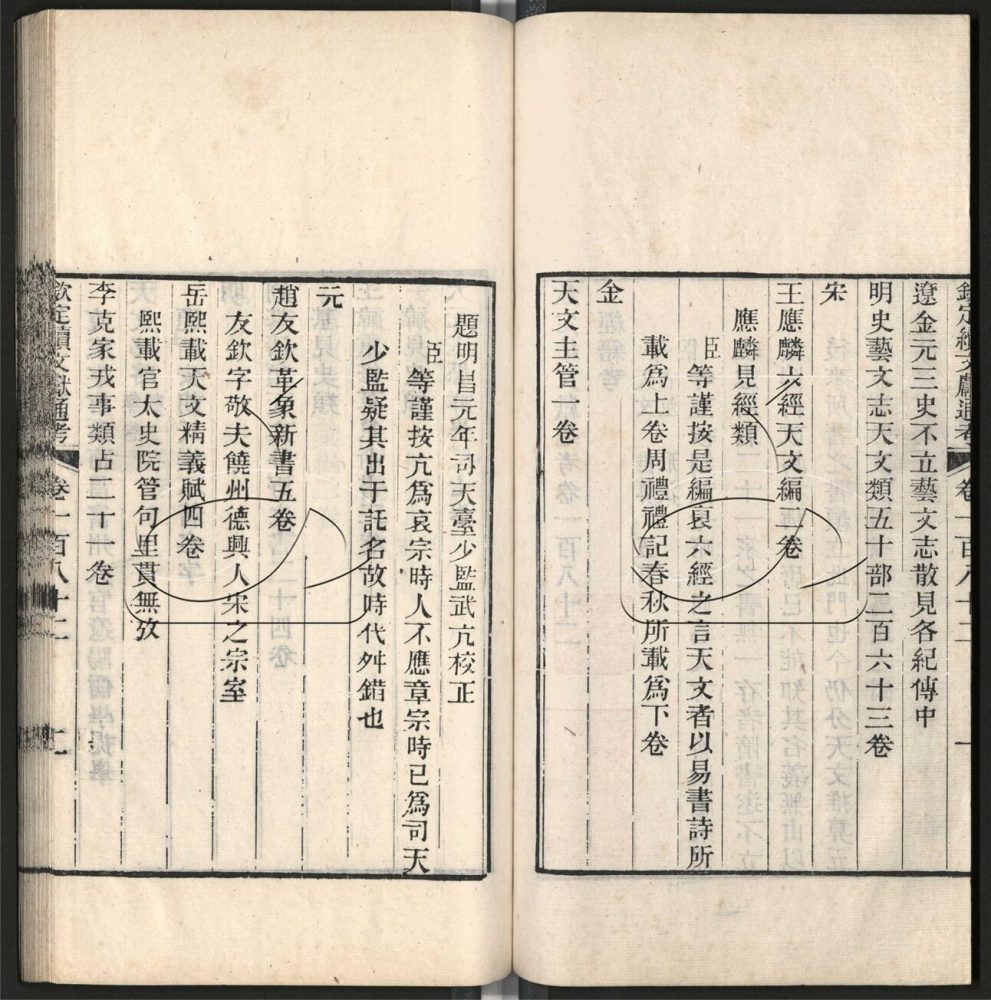 欽定續文獻通考 卷一百八十二 一
遼金元三史不立藝文志散見各紀傳中
明史藝文志天文類五十部二百六十三卷
宋
王應麟六經天文編二卷
應麟見經類
臣等謹按是編裒六經之言天文者以易書詩所
載爲上卷周禮禮記春秋所載爲下卷
金
天文主管一卷
題明昌元年司天臺少監武亢校正
臣等謹按亢爲哀宗時人不應章宗時已爲司天
少監疑其出于託名故時代舛錯也
元
趙友欽革象新書五卷
友欽字敬夫饒州德興人宋之宗室
岳熙載天文精義賦四卷
熙載官太史院管句里貫無攷
李克家戎事類占二十一卷
欽定續文獻通考 卷一百八十二 二